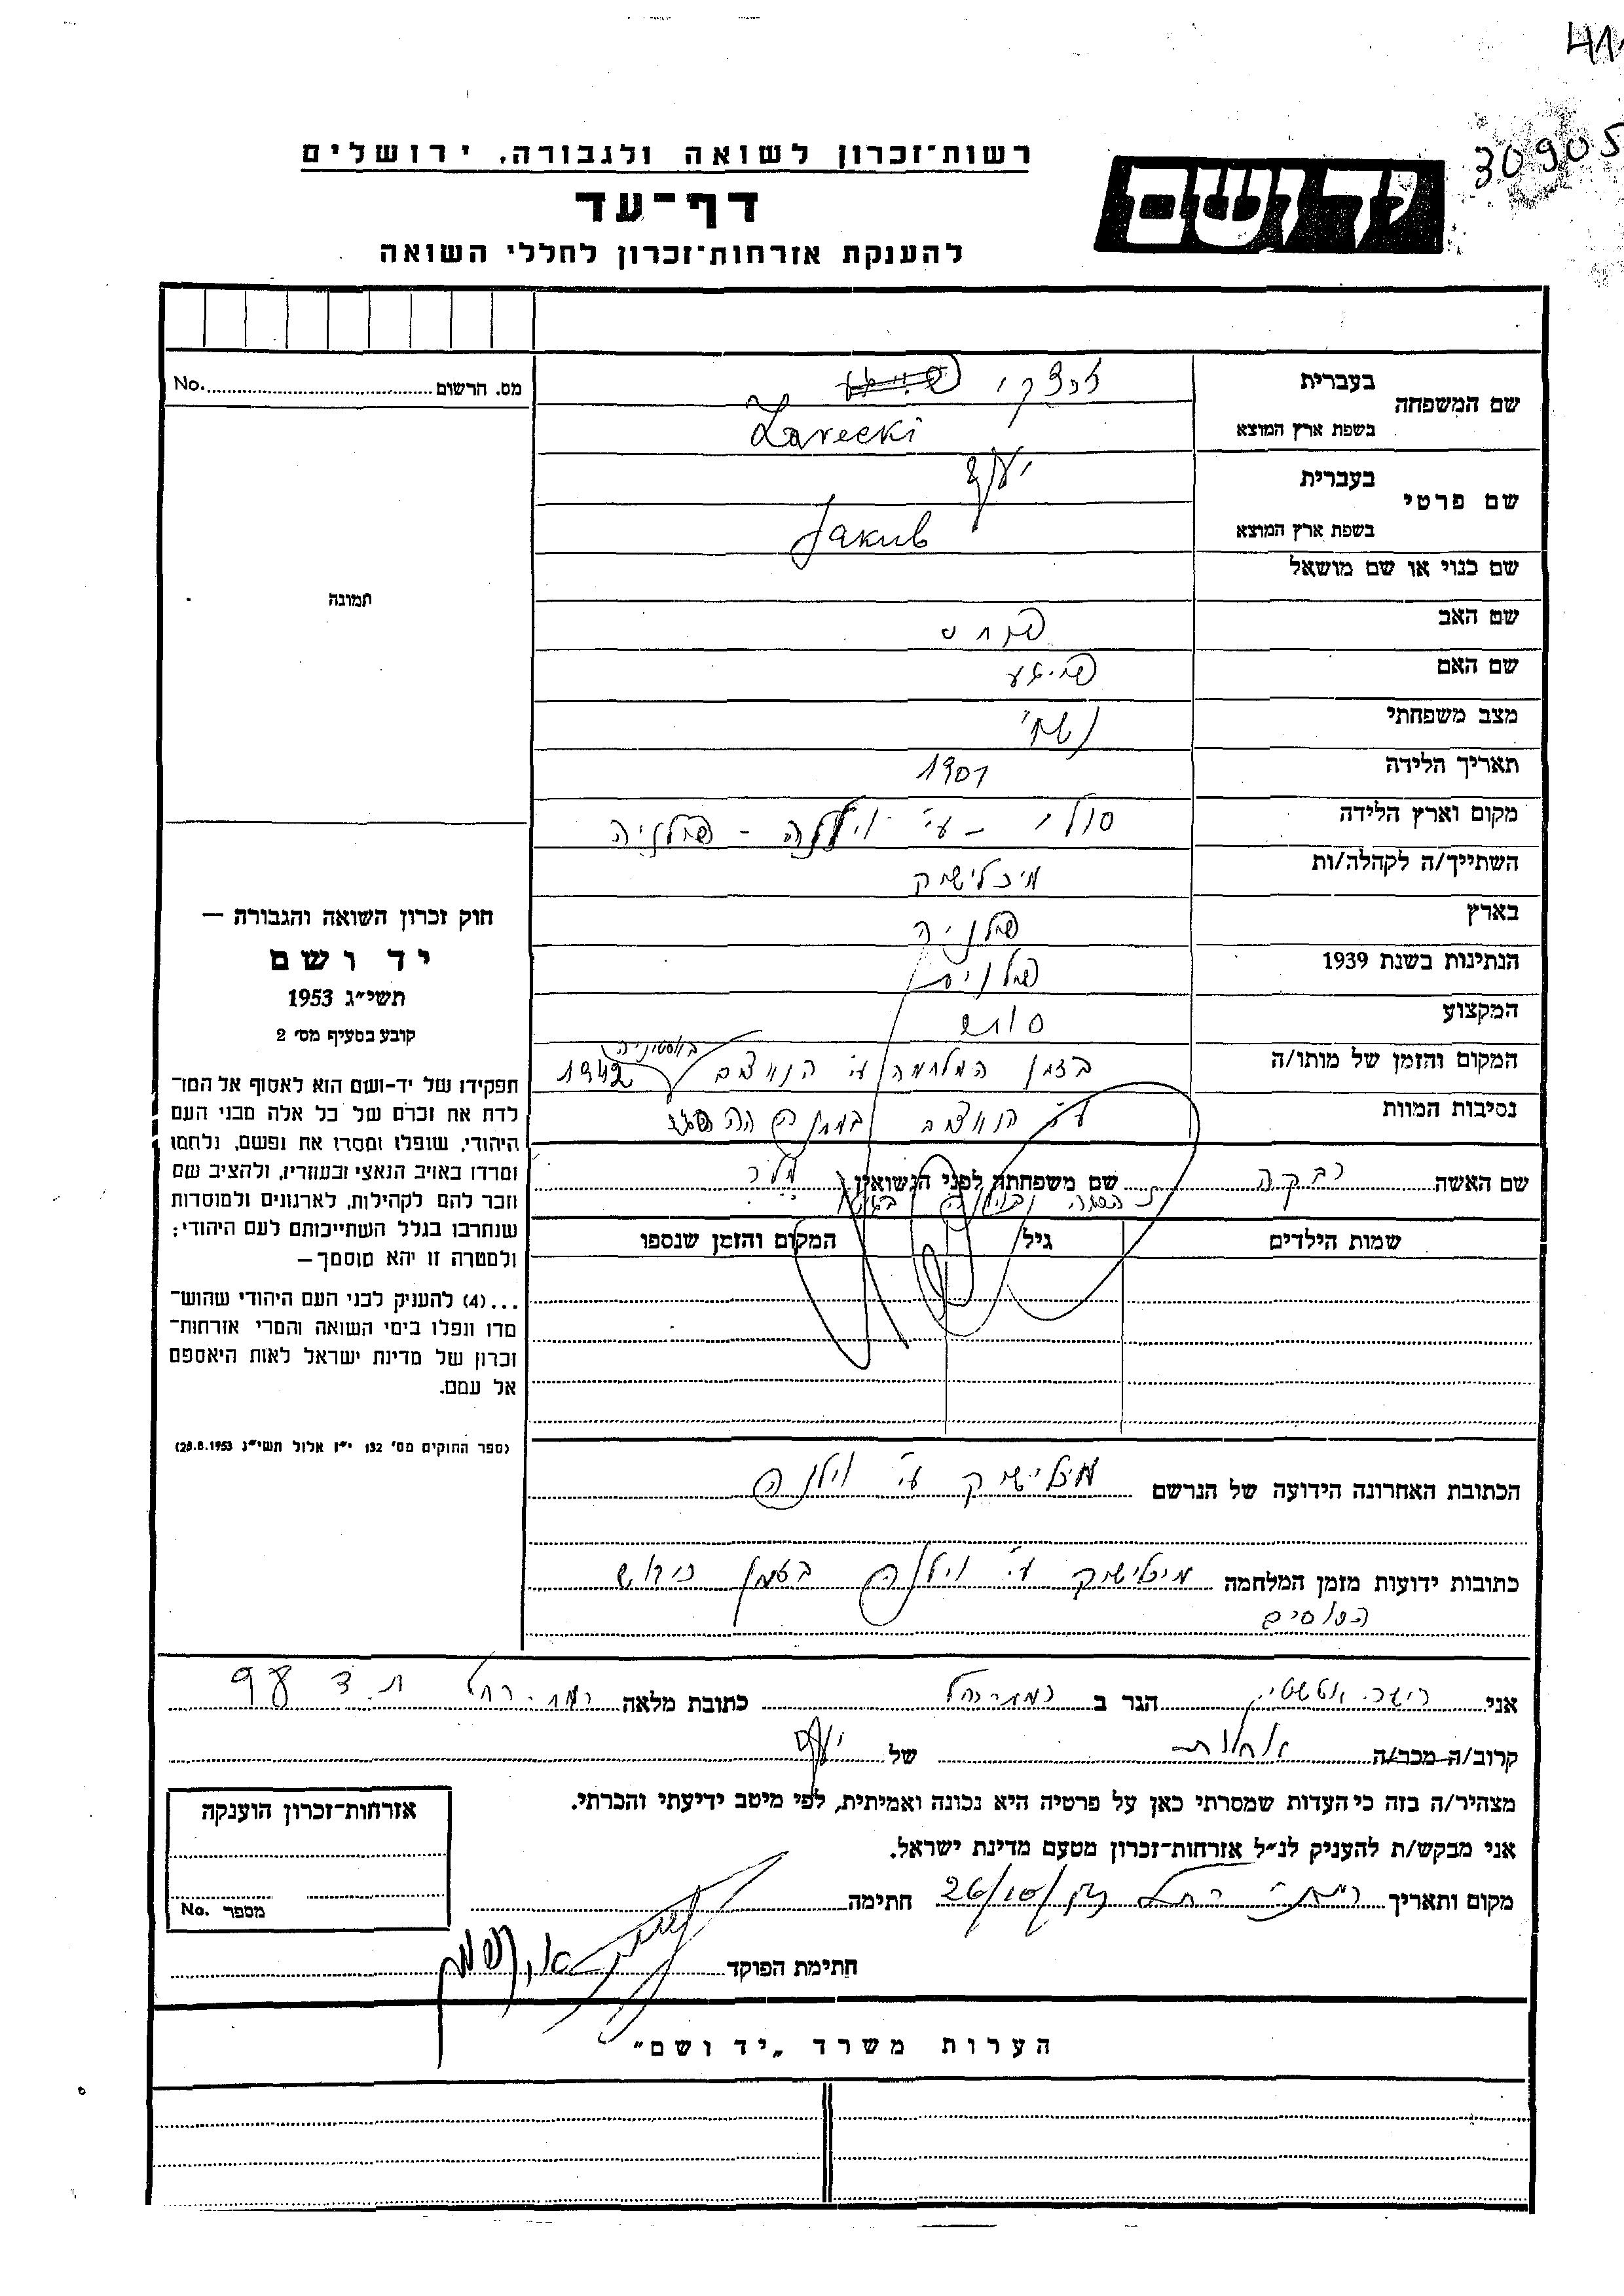 41
30905
רשות־זכרון לשואה ולגבורה, ירושלים
יד ושם
דף־עד
להענקת אזרחות־זכרון לחללי השואה
מס. הרשום No.
תמונה
שם המשפחה
בעברית
זרצקי
בשפת ארץ המוצא
Zarecki
שם פרטי
בעברית
יעקב
בשפת ארץ המוצא
Jakub
שם כנוי או שם מושאל
שם האב
פנחס
שם האם
מצב משפחתי
נשוי
תאריך הלידה
1901
מקום וארץ הלידה
סולי – ע״י וילנה – פולניה
השתייך/ה לקהלה/ות
מיכלישוק
בארץ
פולניה
הנתינות בשנת 1939
פולנית
המקצוע
סוחר
המקום והזמן של מותו/ה
באסטוניה
בזמן המלחמה ע״י הנאצים 1942
נסיבות המוות
ע״י הנאצים במחנה
שם האשה רבקה שם משפחתה לפני הנשואין
שמות הילדים גיל המקום והזמן שנספו
הכתובת האחרונה הידועה של הנרשם מיכלישוק ע״י וילנה
כתובות ידועות מזמן המלחמה מיכלישוק ע״י וילנה בזמן כיבוש
הרוסים
חוק זכרון השואה והגבורה —
יד ושם
תשי״ג 1953
קובע בסעיף מס׳ 2
תפקידו של יד־ושם הוא לאסוף אל המו־
לדת את זכרם של כל אלה מבני העם
היהודי, שנפלו ומסרו את נפשם, נלחמו
ומרדו באויב הנאצי ובעוזריו, ולהציב שם
וזכר להם לקהילות, לארגונים ולמוסדות
שנחרבו בגלל השתייכותם לעם היהודי;
ולמטרה זו יהא מוסמך —
...(4) להעניק לבני העם היהודי שהוש־
מדו ונפלו בימי השואה והמרי אזרחות־
זכרון של מדינת ישראל לאות היאספם
אל עמם.
(ספר החוקים מס׳ 132 י״ז אלול תשי״ג 28.8.1953)
אני הגר ב רמת רחל כתובת מלאה רמת רחל ת.ד 98
קרוב/ה מכר/ה של יעקב
מצהיר/ה בזה כי העדות שמסרתי כאן על פרטיה היא נכונה ואמיתית, לפי מיטב ידיעתי והכרתי.
אני מבקש/ת להעניק לנ״ל אזרחות־זכרון מטעם מדינת ישראל.
מקום ותאריך רמת רחל 26/10/ חתימה
חתימת הפוקד
אזרחות־זכרון הוענקה
מספר No.
הערות משרד „יד ושם"